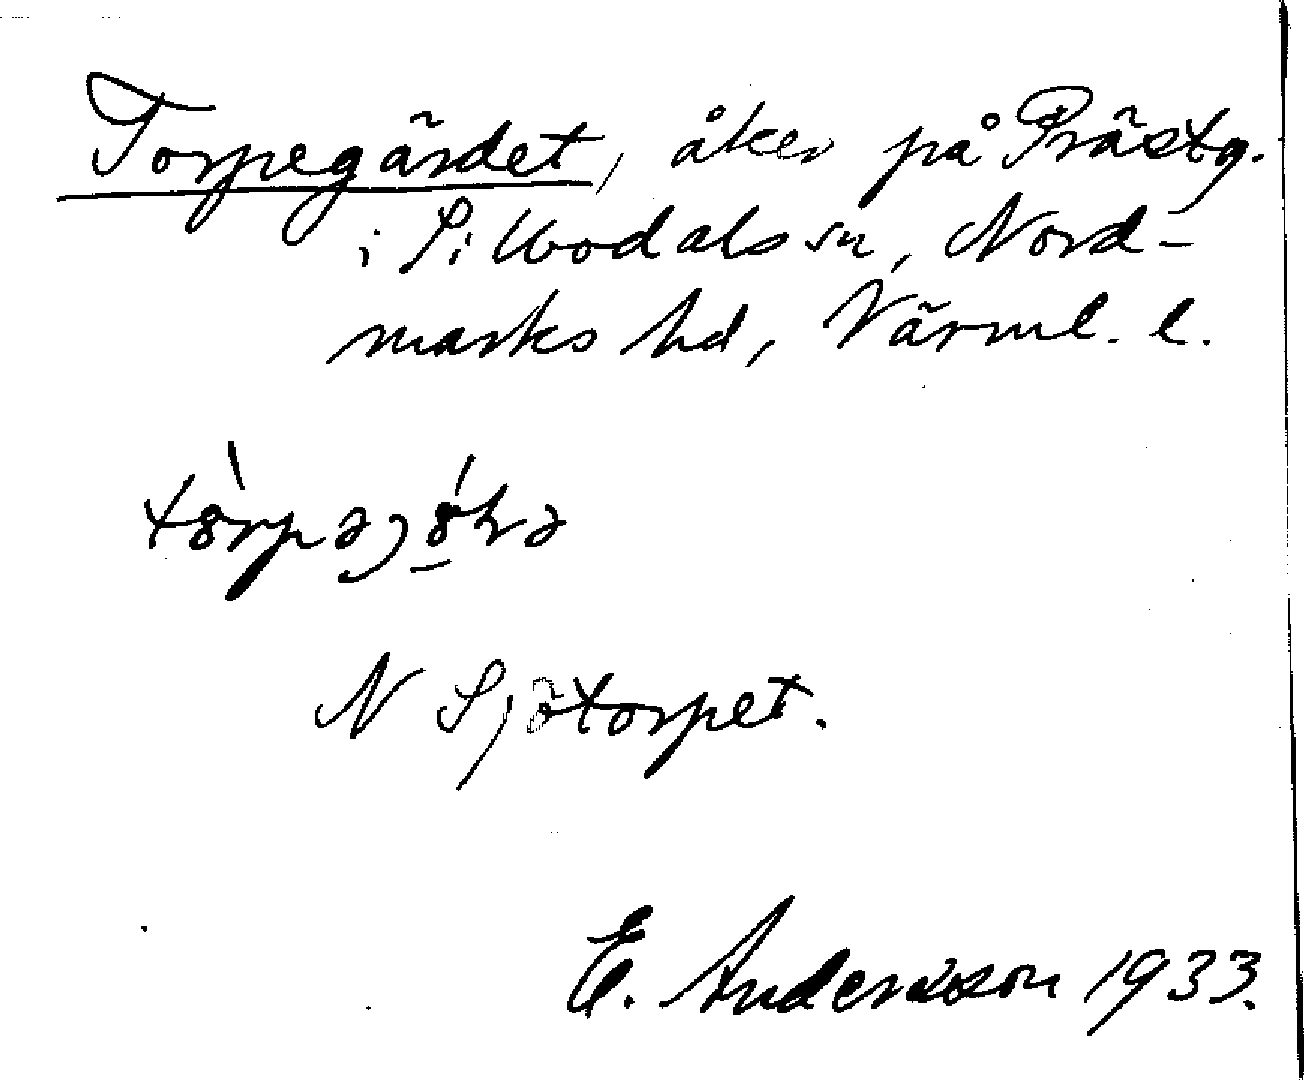 Torpegärdet, åker på Prästg.
i Sillbodals sn, Nord-
marks hd, Värml. l.
N Sjötorpet.
E. Andersson 1933.